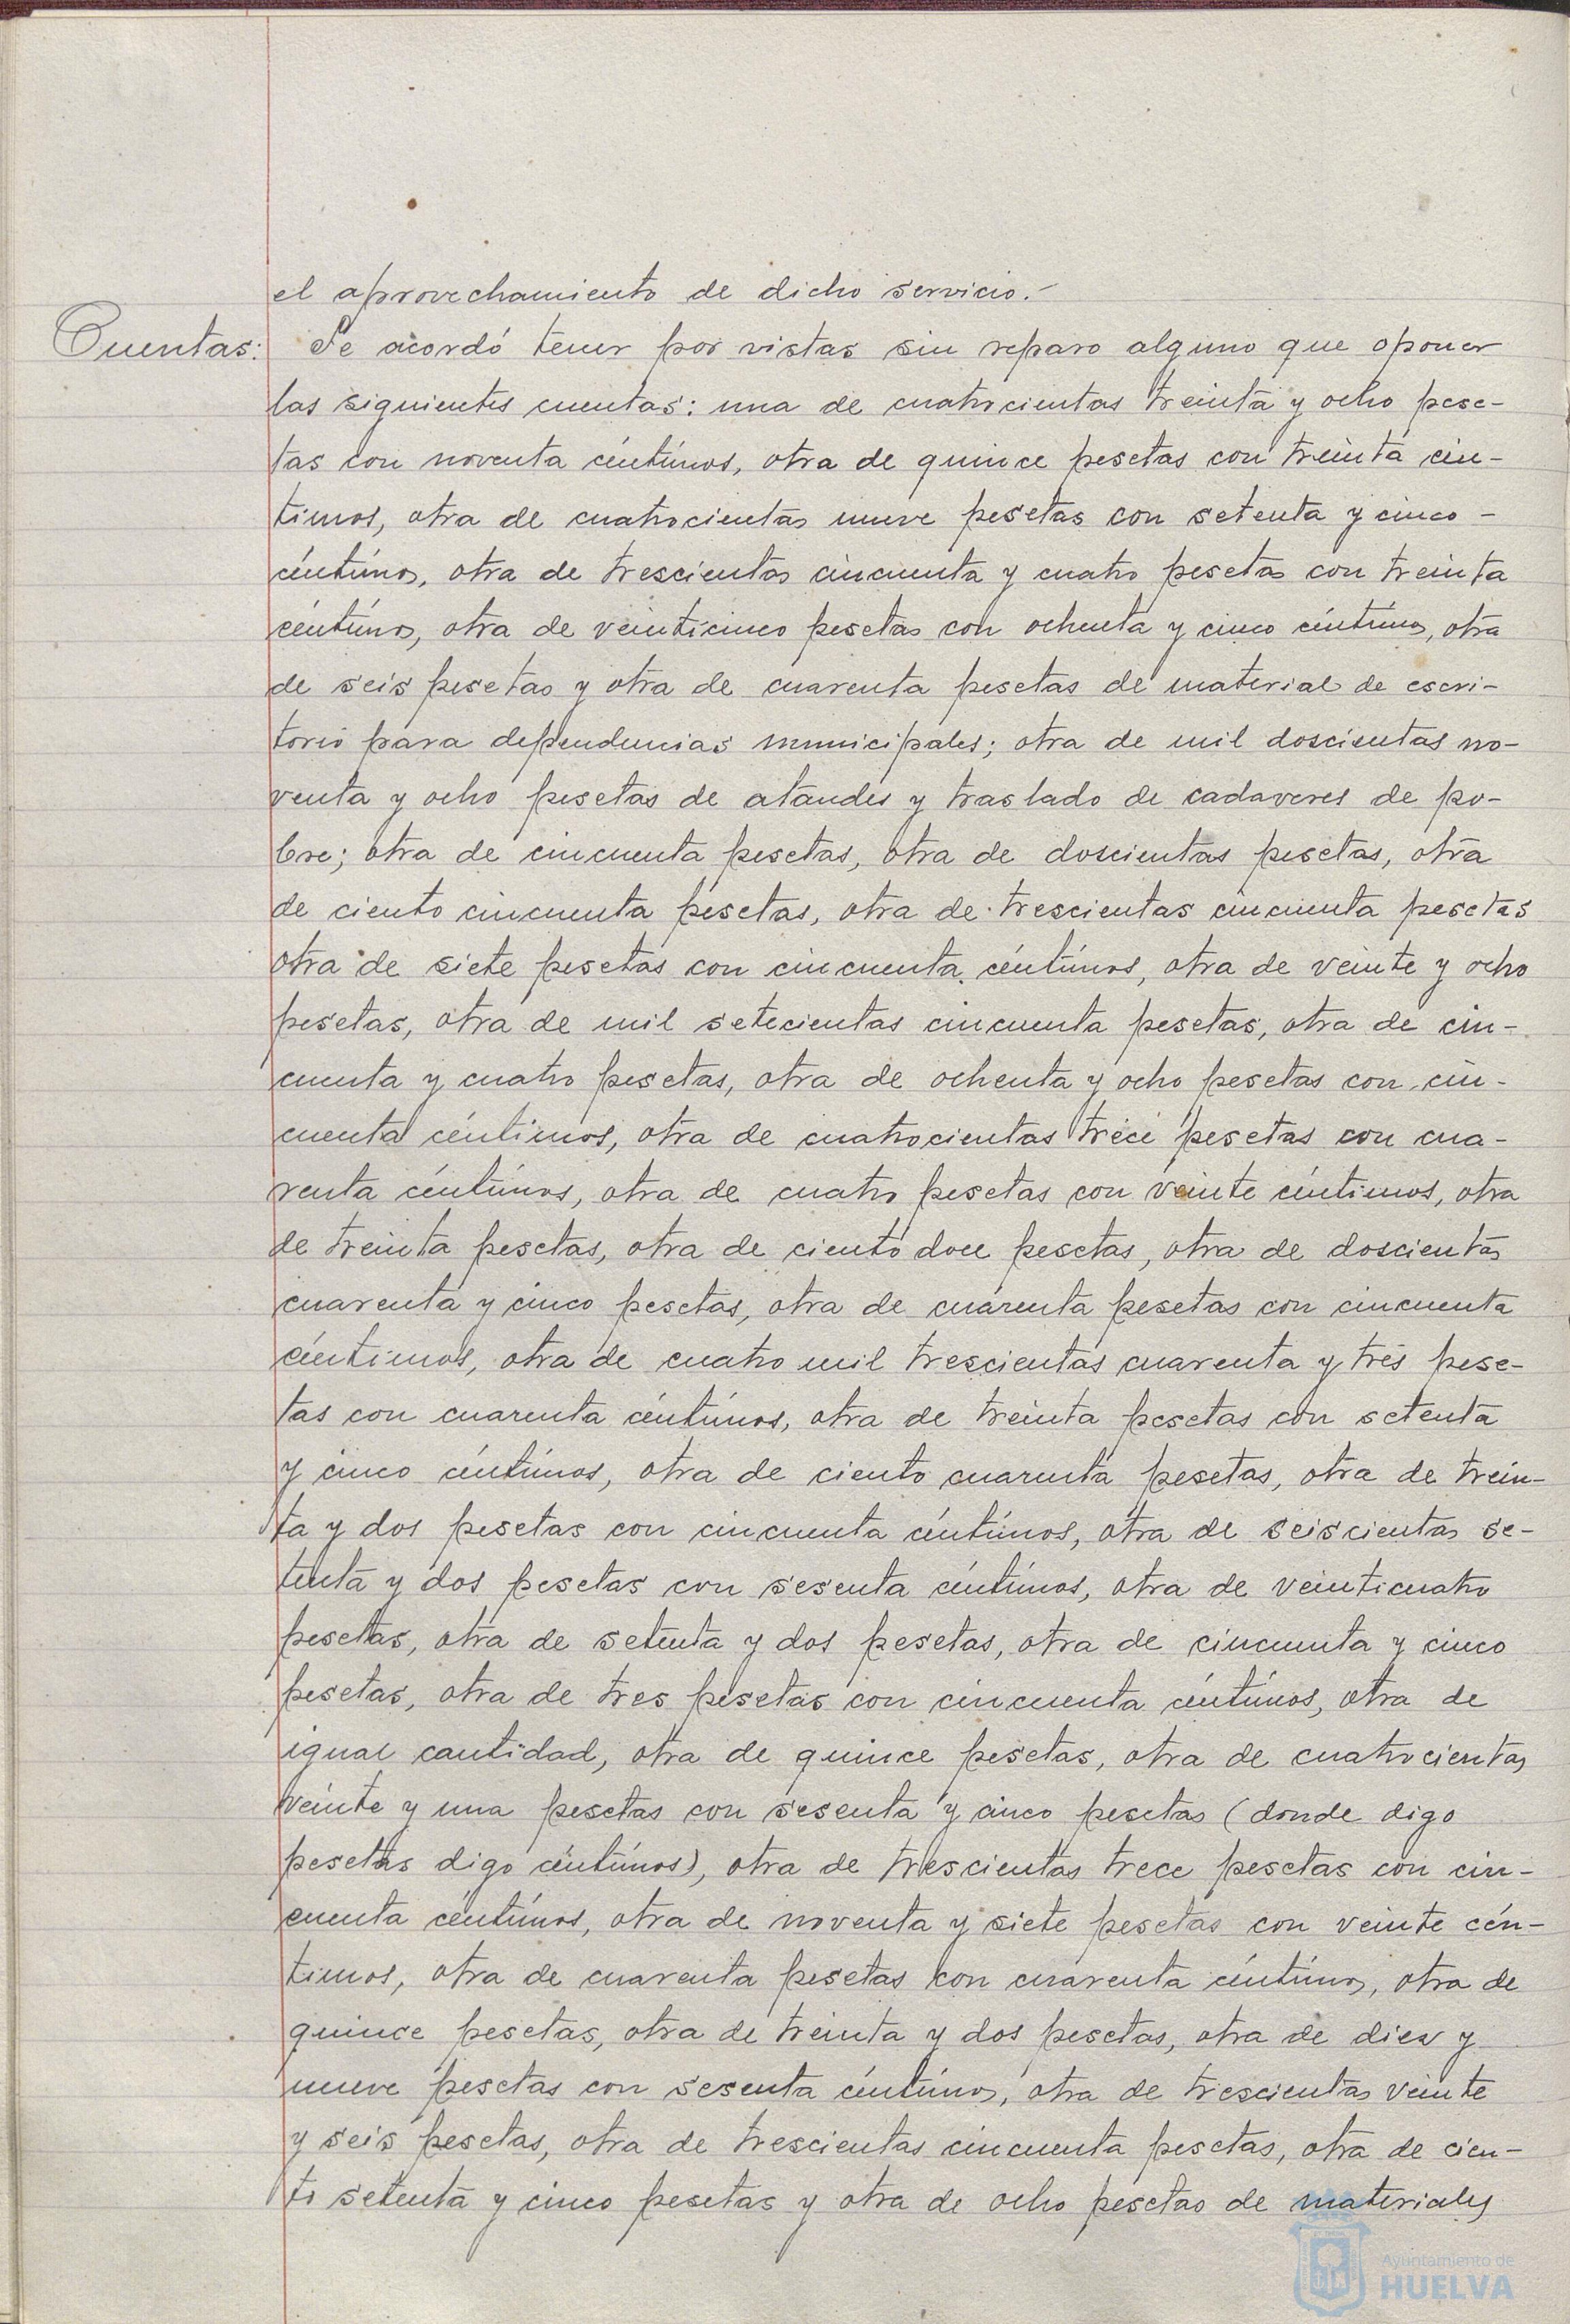 el aprovechamiento de dicho servicio.-
Cuentas: Se acordó tener por vistas sin reparo alguno que oponer
las siguientes cuentas: una de cuatrocientas treinta y ocho pese-
tas con noventa céntimos, otra de quince pesetas con treinta cén-
timos, otra de cuatrocientas nueve pesetas con setenta y cinco -
céntimos, otra de trescientas cincuenta y cuatro pesetas con treinta
céntimos, otra de veinticinco pesetas con ochenta y cinco céntimos, otra
de seis pesetas y otra de cuarenta pesetas de material de escri-
torio para dependencias municipales; otra de mil doscientas no-
venta y ocho pesetas de ataudes y traslado de cadaveres de po-
bre; otra de cincuenta pesetas, otra de doscientas pesetas, otra
de ciento cincuenta pesetas, otra de trescientas cincuenta pesetas
otra de siete pesetas con cincuenta céntimos, otra de veinte y ocho
pesetas, otra de mil setecientas cincuenta pesetas, otra de cin-
cuenta y cuatro pesetas, otra de ochenta y ocho pesetas con cin-
cuenta céntimos, otra de cuatrocientas trece pesetas con cua-
renta céntimos, otra de cuatro pesetas con veinte céntimos, otra
de treinta pesetas, otra de ciento doce pesetas, otra de doscientas
cuarenta y cinco pesetas, otra de cuarenta pesetas con cincuenta
céntimos, otra de cuatro mil trescientas cuarenta y tres pese-
tas con cuarenta céntimos, otra de treinta pesetas con setenta
y cinco céntimos, otra de ciento cuarenta pesetas, otra de trein-
ta y dos pesetas con cincuenta céntimos, otra de seiscientas se-
tenta y dos pesetas con sesenta céntimos, otra de veinticuatro
pesetas, otra de setenta y dos pesetas, otra de cincuenta y cinco
pesetas, otra de tres pesetas con cincuenta céntimos, otra de
igual cantidad, otra de quince pesetas, otra de cuatrocientas
veinte y una pesetas con sesenta y cinco pesetas (donde digo
pesetas digo céntimos), otra de trescientas trece pesetas con cin-
cuenta céntimos, otra de noventa y siete pesetas con veinte cén-
timos, otra de cuarenta pesetas con cuarenta céntimos, otra de
quince pesetas, otra de treinta y dos pesetas, otra de diez y
nueve pesetas con sesenta céntimos, otra de trescientas veinte
y seis pesetas, otra de trescientas cincuenta pesetas, otra de cien-
to setenta y cinco pesetas y otra de ocho pesetas de materiales
Ayuntamiento de
HUELVA